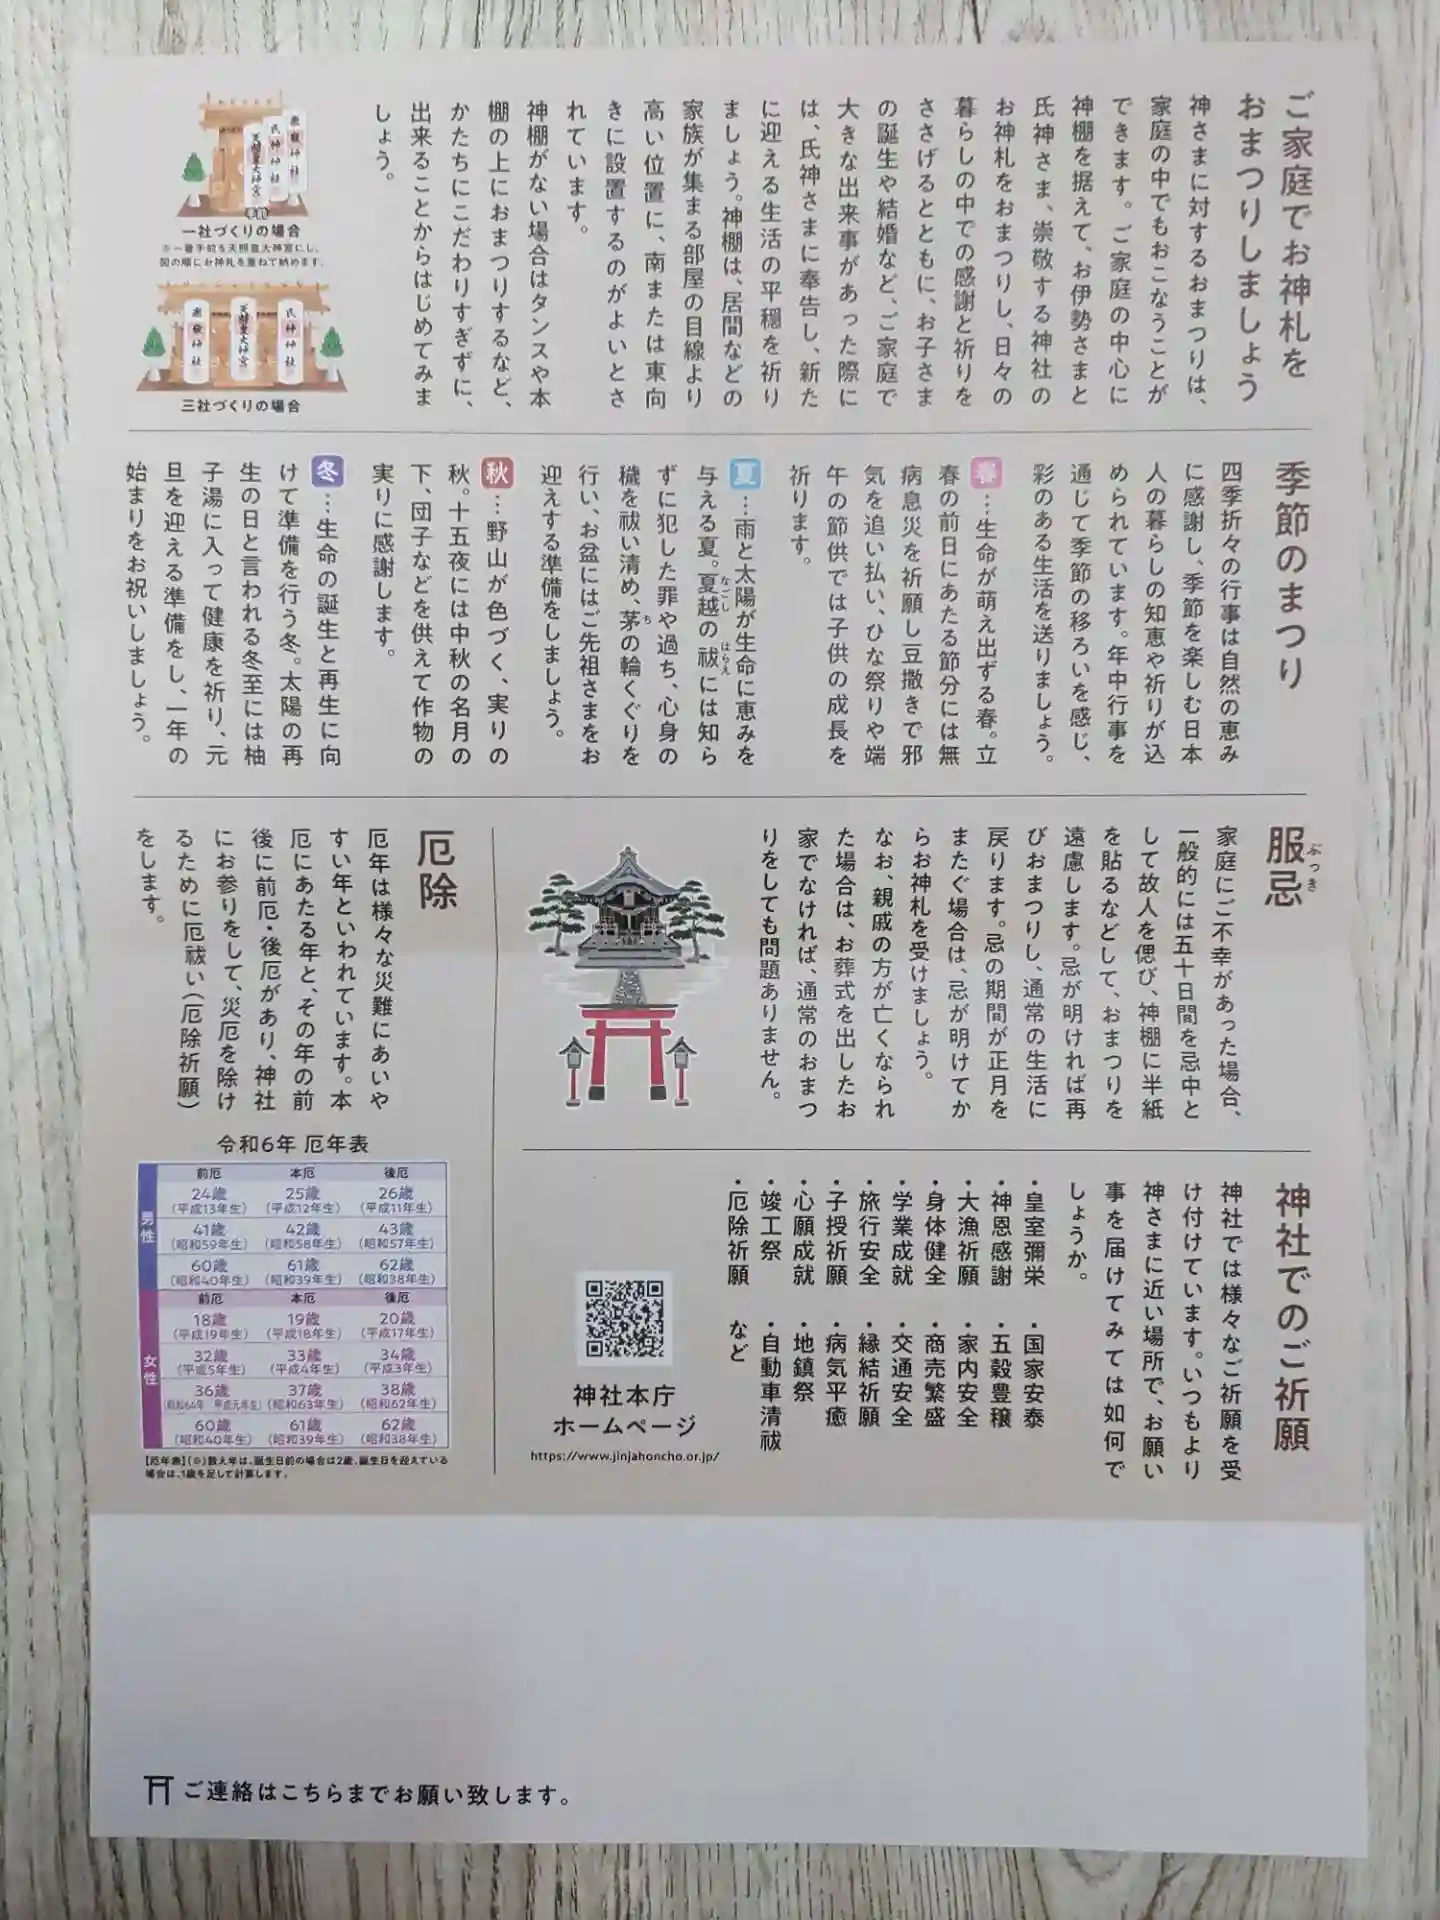 ご家庭でお神札を
おまつりしましょう
神さまに対するおまつりは、
家庭の中でもおこなうことが
できます。ご家庭の中心に
神棚を据えて、お伊勢さまと
氏神さま、崇敬する神社の
お神札をおまつりし、日々の
暮らしの中での感謝と祈りを
ささげるとともに、お子さま
の誕生や結婚など、ご家庭で
大きな出来事があった際に
は、氏神さまに奉告し、新た
に迎える生活の平穏を祈り
ましょう。神棚は、居間などの
家族が集まる部屋の目線より
高い位置に、南または東向
きに設置するのがよいとさ
れています。
神棚がない場合はタンスや本
棚の上におまつりするなど、
かたちにこだわりすぎずに、
出来ることからはじめてみま
しょう。
崇敬神社
氏神神社
天照皇大神宮
手前
一社づくりの場合
※一番手前を天照皇大神宮にし、
図の順にお神札を重ねて納めます。
氏神神社
天照皇大神宮
崇敬神社
三社づくりの場合
季節のまつり
四季折々の行事は自然の恵み
に感謝し、季節を楽しむ日本
人の暮らしの知恵や祈りが込
められています。年中行事を
通じて季節の移ろいを感じ、
彩のある生活を送りましょう。
春…生命が萌え出ずる春。立
春の前日にあたる節分には無
病息災を祈願し豆撒きで邪
気を追い払い、ひな祭りや端
午の節供では子供の成長を
祈ります。
夏…雨と太陽が生命に恵みを
与える夏。夏越の祓には知ら
なごし はらえ
ずに犯した罪や過ち、心身の
穢を祓い清め、茅の輪くぐりを
ち
行い、お盆にはご先祖さまをお
迎えする準備をしましょう。
秋…野山が色づく、実りの
秋。十五夜には中秋の名月の
下、団子などを供えて作物の
実りに感謝します。
冬…生命の誕生と再生に向
けて準備を行う冬。太陽の再
生の日と言われる冬至には柚
子湯に入って健康を祈り、元
旦を迎える準備をし、一年の
始まりをお祝いしましょう。
服忌
ぶっき
家庭にご不幸があった場合、
一般的には五十日間を忌中と
して故人を偲び、神棚に半紙
を貼るなどして、おまつりを
遠慮します。忌が明ければ再
びおまつりし、通常の生活に
戻ります。忌の期間が正月を
またぐ場合は、忌が明けてか
らお神札を受けましょう。
なお、親戚の方が亡くなられ
た場合は、お葬式を出したお
家でなければ、通常のおまつ
りをしても問題ありません。
神社でのご祈願
神社では様々なご祈願を受
け付けています。いつもより
神さまに近い場所で、お願い
事を届けてみては如何で
しょうか。
・皇室彌栄 ・国家安泰
・神恩感謝 ・五穀豊穣
・大漁祈願 ・家内安全
・身体健全 ・商売繁盛
・学業成就 ・交通安全
・旅行安全 ・縁結祈願
・子授祈願 ・病気平癒
・心願成就 ・地鎮祭
・竣工祭 ・自動車清祓
・厄除祈願 など
神社本庁
ホームページ
https://www.jinjahoncho.or.jp/
厄除
厄年は様々な災難にあいや
すい年といわれています。本
厄にあたる年と、その年の前
後に前厄・後厄があり、神社
にお参りをして、災厄を除け
るために厄祓い(厄除祈願)
をします。
令和6年 厄年表
男性
前厄 本厄 後厄
24歳 25歳 26歳
(平成13年生) (平成12年生) (平成11年生)
41歳 42歳 43歳
(昭和59年生) (昭和58年生) (昭和57年生)
60歳 61歳 62歳
(昭和40年生) (昭和39年生) (昭和38年生)
女性
前厄 本厄 後厄
18歳 19歳 20歳
(平成19年生) (平成18年生) (平成17年生)
32歳 33歳 34歳
(平成5年生) (平成4年生) (平成3年生)
36歳 37歳 38歳
(昭和64年 平成元年生) (昭和63年生) (昭和62年生)
60歳 61歳 62歳
(昭和40年生) (昭和39年生) (昭和38年生)
【厄年表】(※)数え年は、誕生日前の場合は2歳、誕生日を迎えている
場合は、1歳を足して計算します。
ご連絡はこちらまでお願い致します。